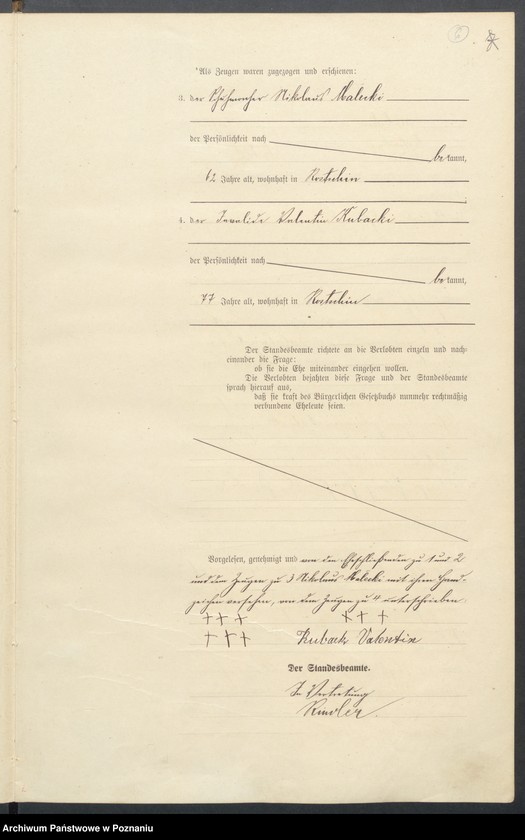 6
Als Zeugen waren zugezogen und erschienen:
3. der Schuhmacher Nikolaus Malecki
der Persönlichkeit nach
be kannt,
62 Jahre alt, wohnhaft in Kostschin
4. der Invalide Valentin Kubacki
der Persönlichkeit nach
be kannt,
77 Jahre alt, wohnhaft in Kostschin
Der Standesbeamte richtete an die Verlobten einzeln und nach-
einander die Frage:
ob sie die Ehe miteinander eingehen wollen.
Die Verlobten bejahten diese Frage und der Standesbeamte
sprach hierauf aus,
daß sie kraft des Bürgerlichen Gesetzbuchs nunmehr rechtmäßig
verbundene Eheleute seien.
Vorgelesen, genehmigt und von den Eheschließenden zu 1 und 2
und dem Zeugen zu 3 Nikolaus Malecki mit ihren Hand-
zeichen versehen, von dem Zeugen zu 4 unterschrieben
+++ +++
+++ Kuback Valentin
Der Standesbeamte.
In Vertretung
Archiwum Państwowe w Poznaniu